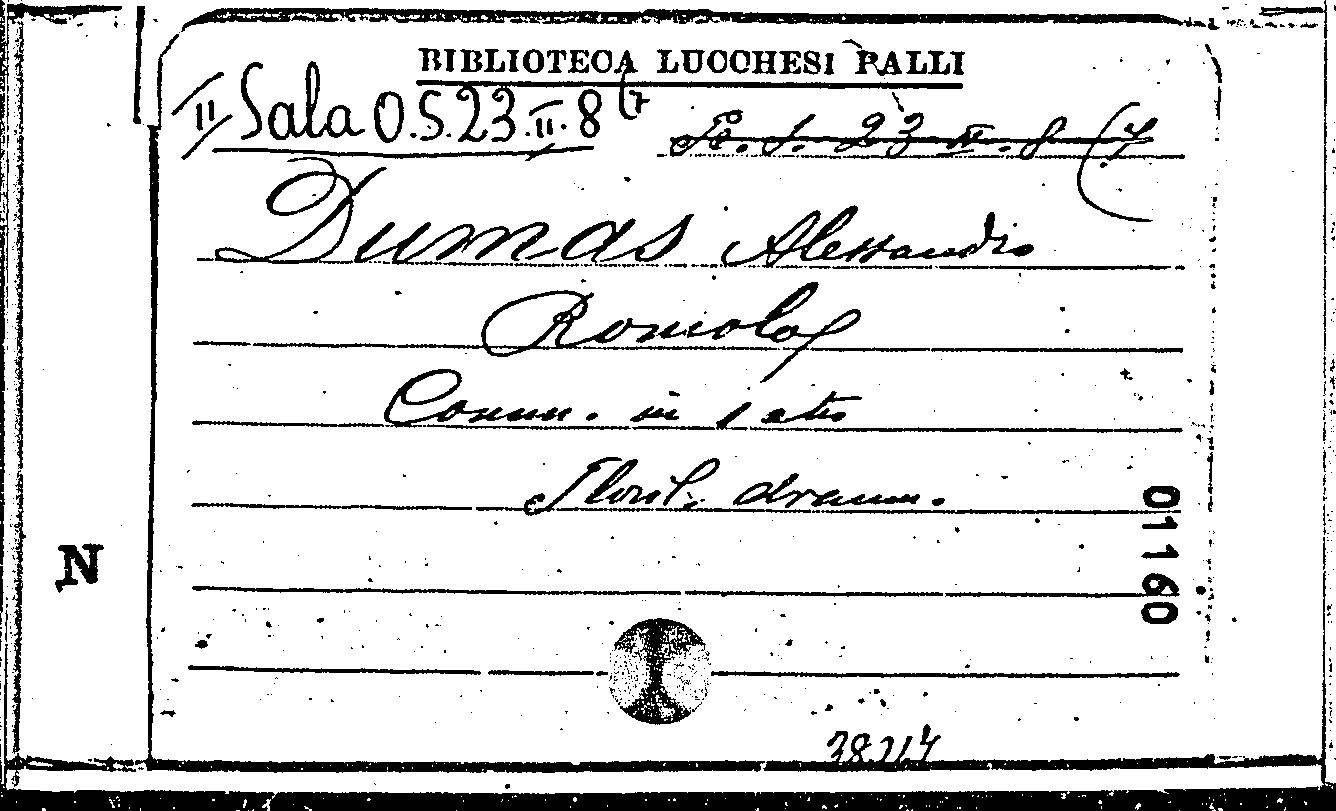 BIBLIOTECA LUCCHESI PALLI
II Sala O.S.23.II.8(7
R. S. 23 II. 8 (7
Dumas Alessandro
Romolo
Comm. in 1 atto
Floril. dramm.
01160
N